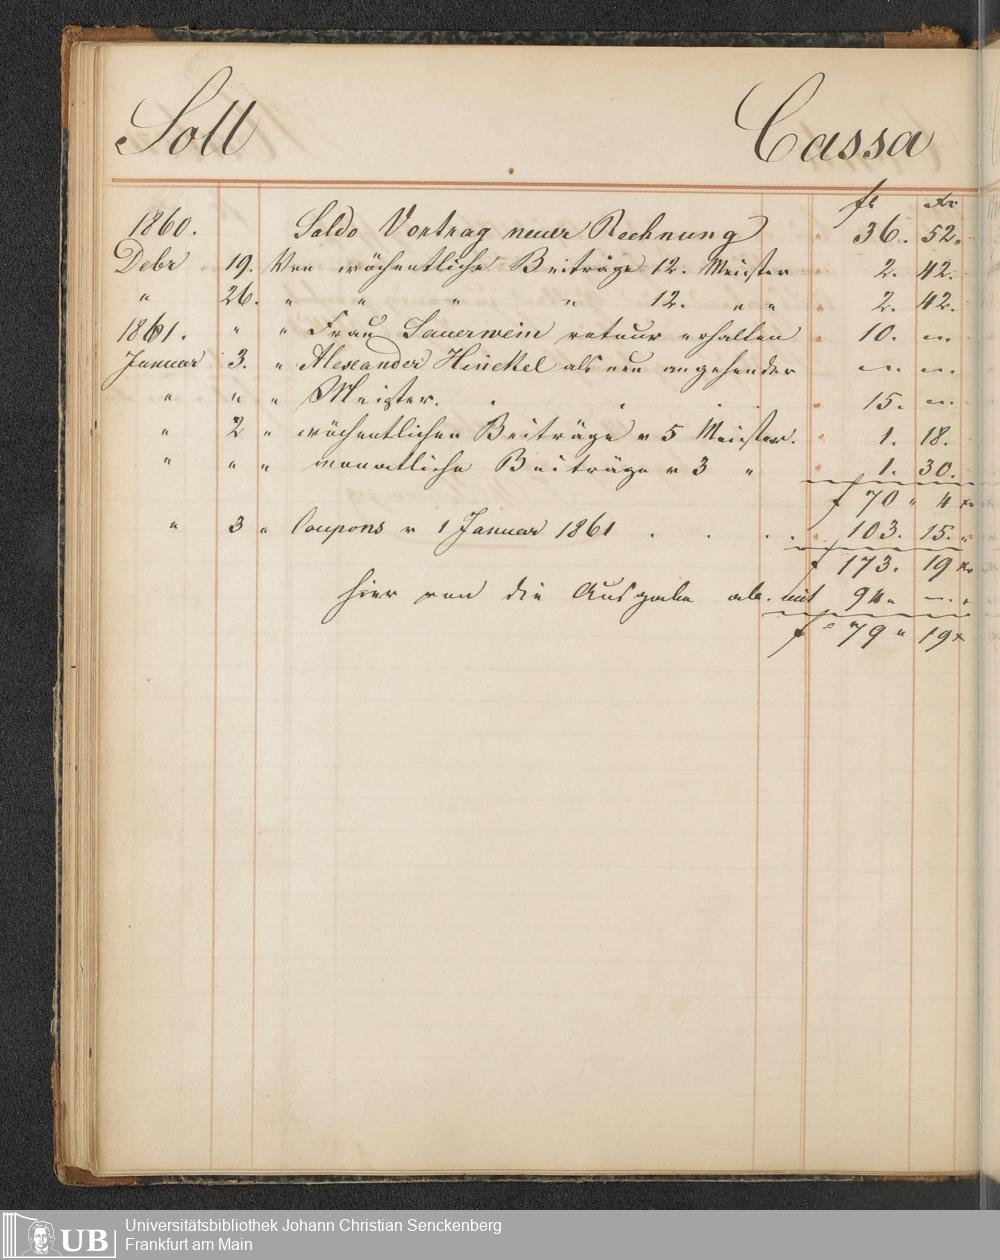 Soll Cassa
fl Xr
1860. Saldo Vortrag neuer Rechnung 36. 52.
Debr 19. Von wöchentliche Beiträge 12. Meister 2. 42.
" 26. " " " " 12. " " 2. 42.
1861. " " Frau Sauerwein retour erhalten 10. —
Januar 3. " Alexander Hinckel als neu angehender — —
" " " Meister. . . . 15. —
" 2 " wöchentlichen Beiträge v 5 Meister. 1. 18.
" " " monatliche Beiträge v 3 " 1. 30.
f 70 " 4 xr
" 3 " Coupons v 1 Januar 1861 . . . . 103. 15. "
f 173. 19 xr
hier von die Ausgabe ab. mit 94. — .
f 79 " 19 x
UB
Universitätsbibliothek Johann Christian Senckenberg
Frankfurt am Main